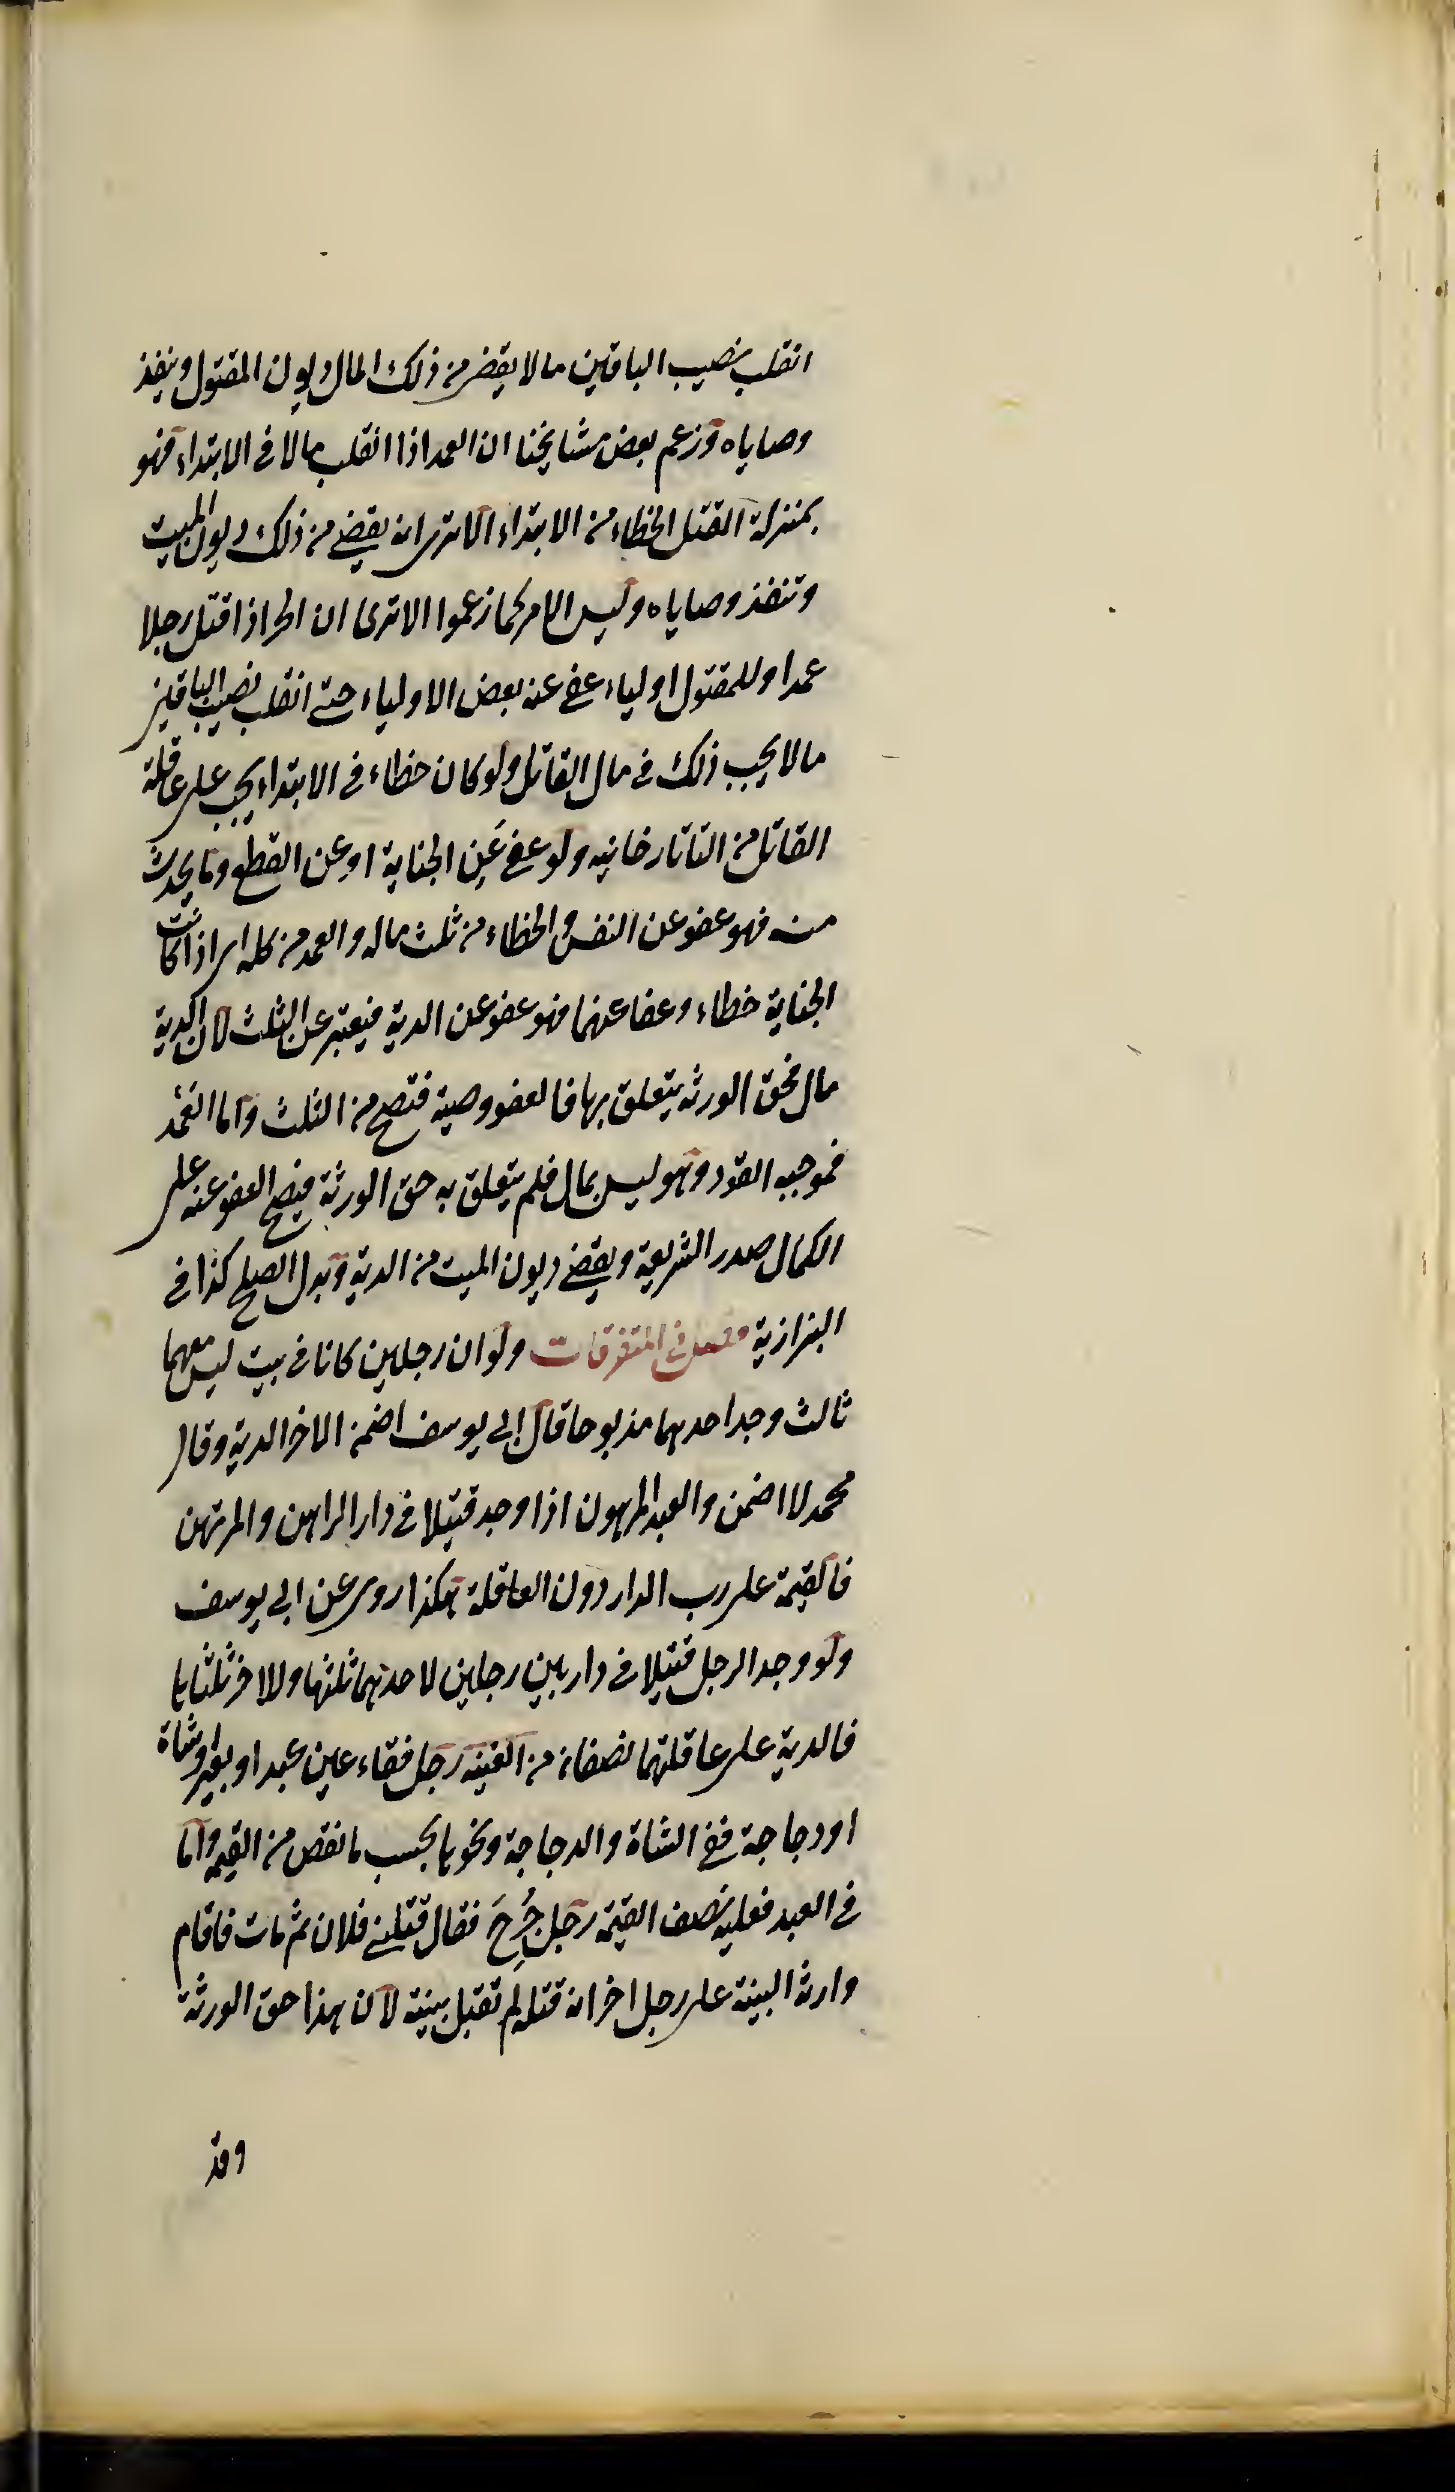 انقلب نصيب الباقين مالا يقضى من ذلك المال ديون المقتول وينفذ
وصاياه وزعم بعض مشايخنا ان العمد اذا انقلب مالا فى الابتداء فهو
بمنزلة القتل الخطاء من الابتداء الا ترى انه يقضى من ذلك ديون الميت
وتنفذ وصاياه وليس الامر كما زعموا الا ترى ان الحر اذا قتل رجلا
عمدا وللمقتول اولياء عفى عنه بعض الاولياء حتى انقلب نصيب الباقين
مالا يجب ذلك فى مال القاتل ولو كان خطاء فى الابتداء يجب على عاقلة
القاتل من التاتارخانيه ولو عفى عَن الجناية او عن القطع وما يحدث
منه فهو عفو عن النفس والخطاء من ثلث ماله والعمد من كله اى اذا كانت
الجناية خطاء وعفا عنها فهو عفو عن الدية فيعتبر عن الثلث لان الدية
مال فحق الورثه يتعلق بها فالعفو وصية فتصح من الثلث واما العمد
فموجبه القود وهو ليس بمال فلم يتعلق به حق الورثة فيصح العفو عنه على
الكمال صدر الشريعة ويقضى ديون الميت من الدية وبدل الصلح كذا فى
البزازية فصل فى المتفرقات ولو ان رجلين كانا فى بيت ليس معهما
ثالث وجد احدهما مذبوحا قال ابى يوسف اضمن الاخر الدية وقال
محمد لا اضمن والعبد المرهون اذا وجد قتيلا فى دار الراهن والمرتهن
فالقيمة على رب الدار دون العاقلة هكذا روى عن ابى يوسف
ولو وجد الرجل قتيلا فى دار بين رجلين لاحدهما ثلثها وللاخر ثلثاها
فالدية على عاقلتهما نصفان من الغنيه رجل فقاء عين عبد او بعير او شاة
او دجاجة ففى الشاة والدجاجة ونحوها بحسب ما نقص من القيمه واما
فى العبد فعليه نصف القيمة رجل جُرِحَ فقال قتلنى فلان ثم مات فاقام
وارثه البينة على رجل اخر انه قتله لم تقبل بينته لان هذا حق الورثة
وقد